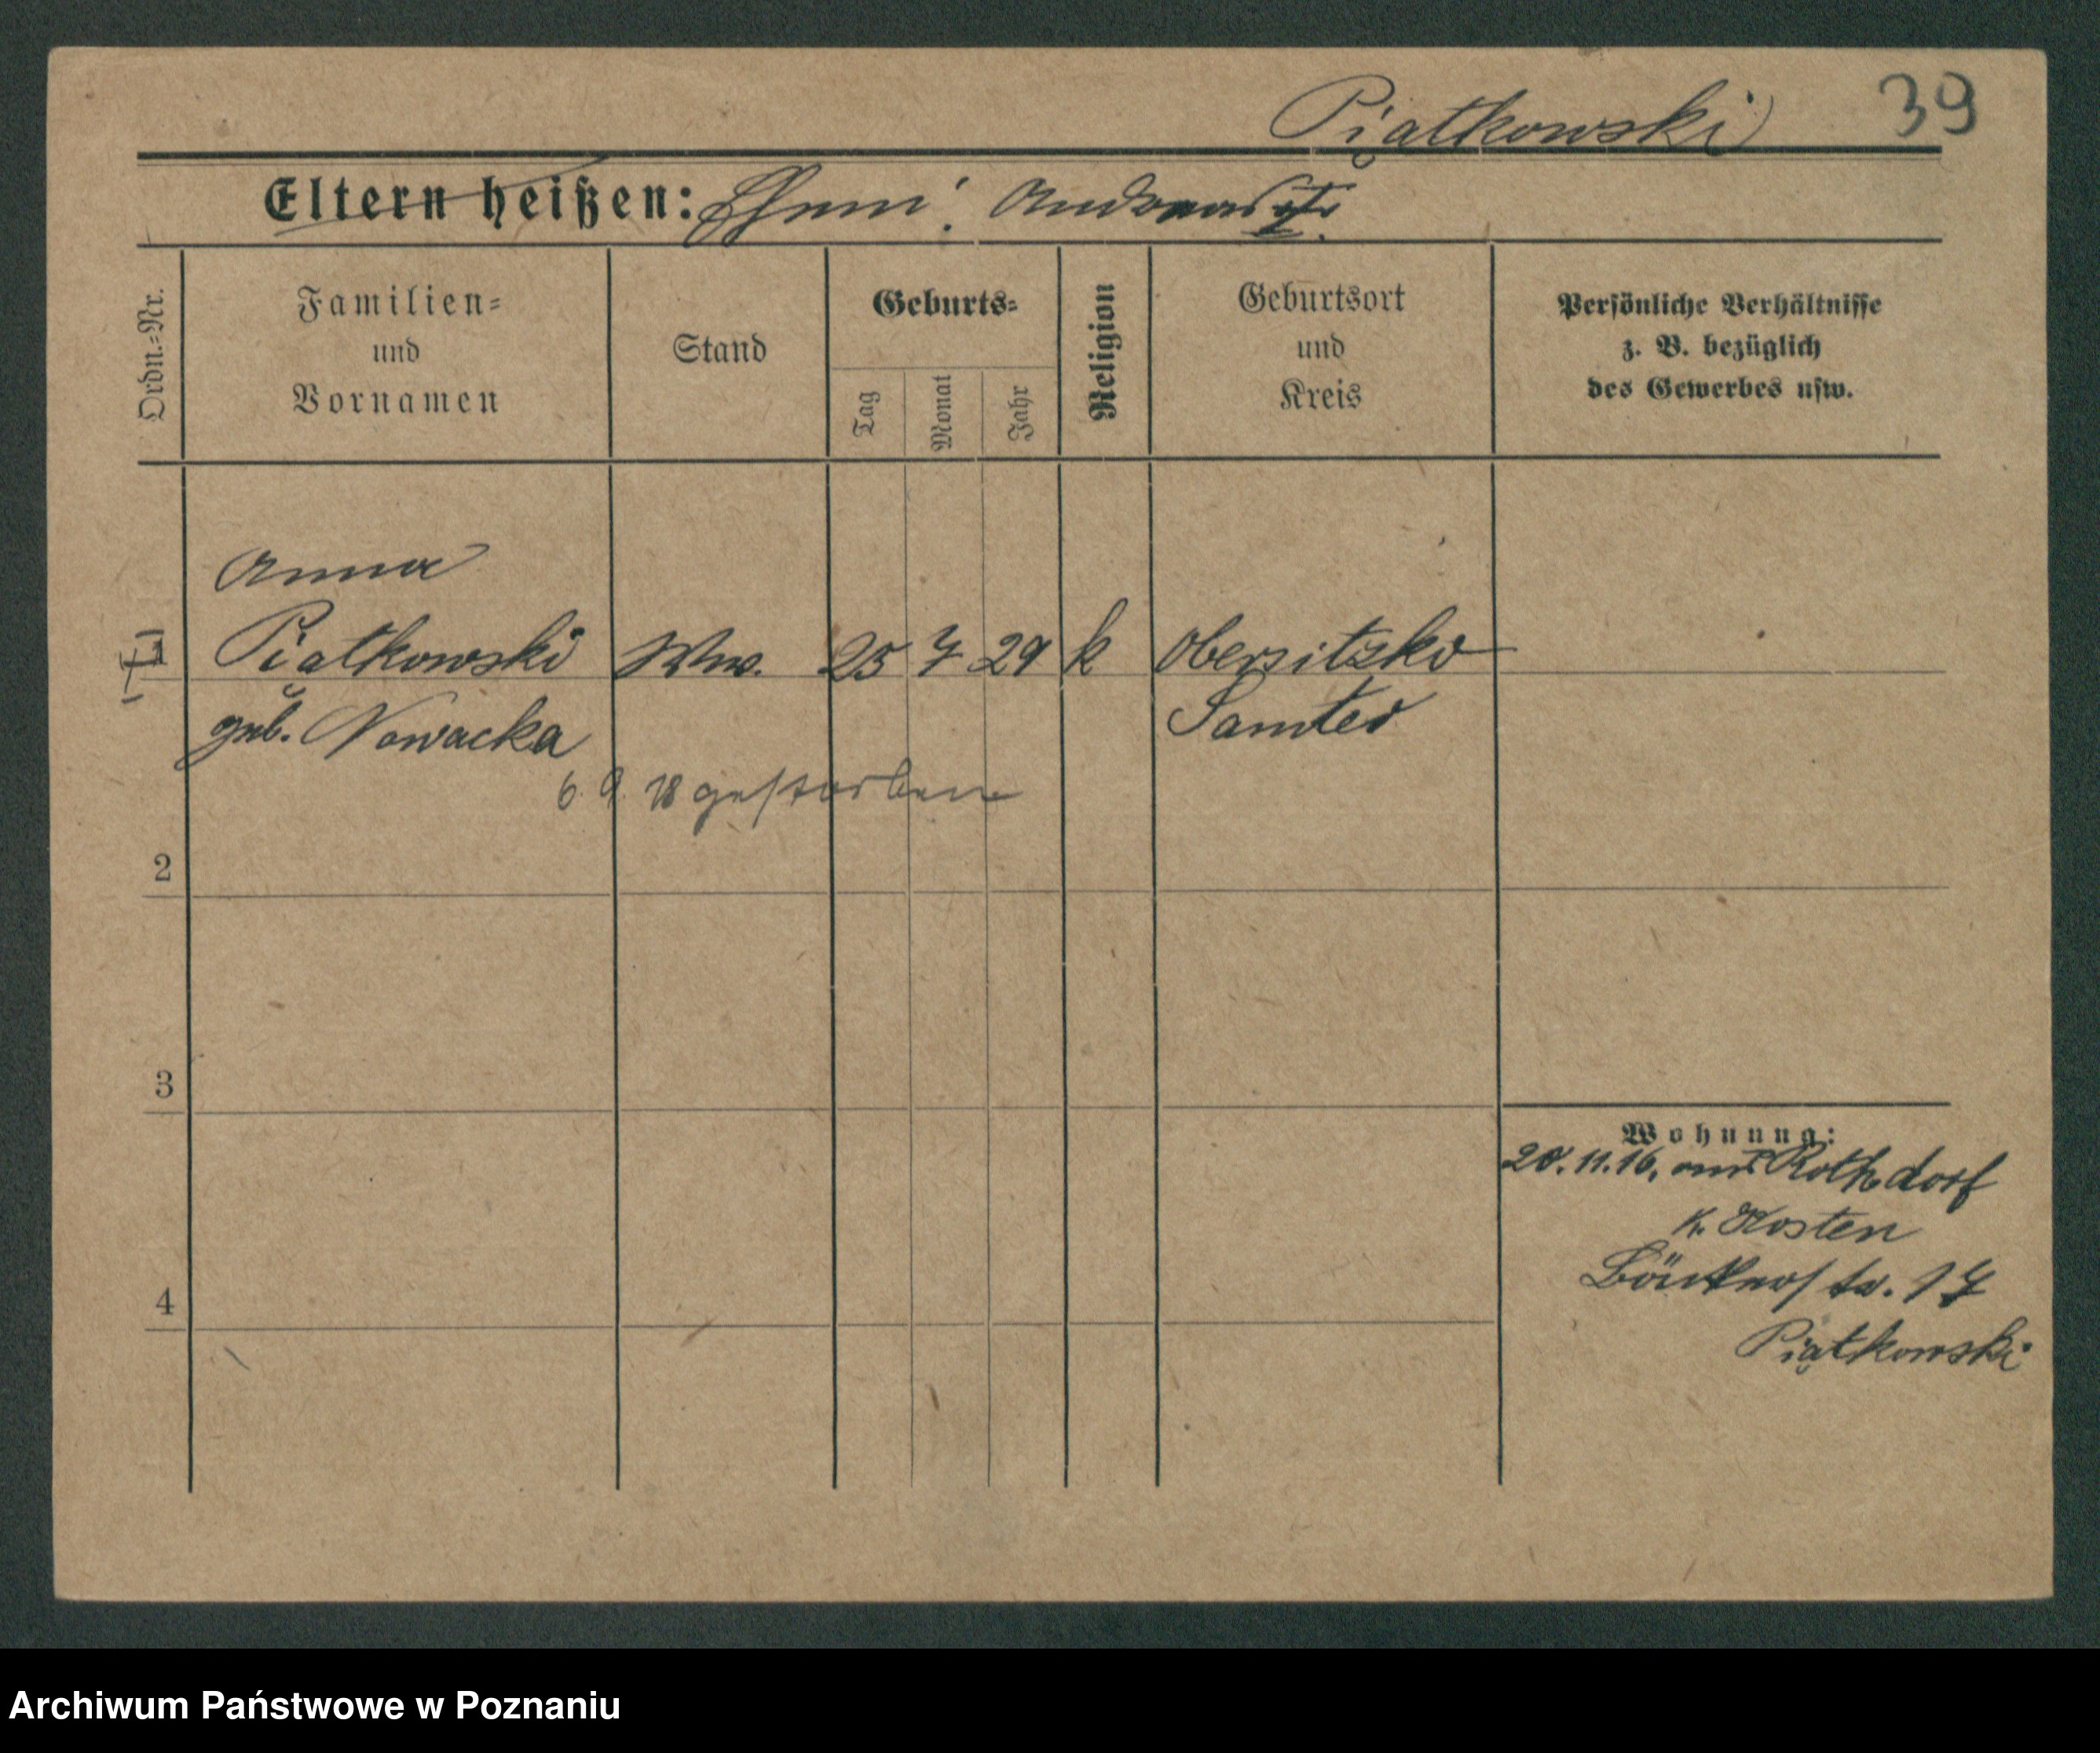 Piątkowski 39
Eltern heißen: Ehem: Andreas †.
Ordn.=Nr.
Familien=
und
Vornamen
Stand
Geburts=
Tag
Monat
Jahr
Religion
Geburtsort
und
Kreis
Persönliche Verhältnisse
z. B. bezüglich
des Gewerbes usw.
Anna
1 Piątkowski Ww. 25 7 29 k Obersitzko
geb. Nowacka Samter
6. 9. 18 gestorben
2
3
Wohnung:
20.11.16, aus Rothdorf
K. Kosten
4
Bäckerstr. 17
Piątkowski
Archiwum Państwowe w Poznaniu